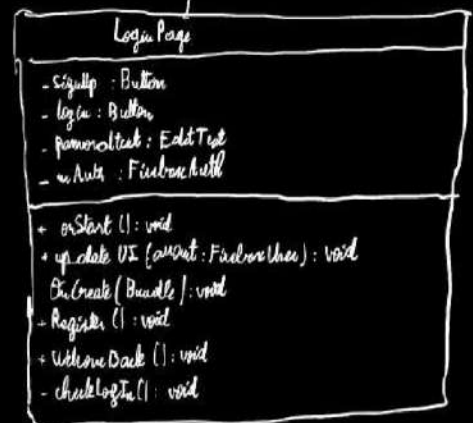 LoginPage
- signUp : Button
- login : Button
- passwordtext : EditText
- mAuth : FirebaseAuth
+ onStart () : void
+ update UI (account : FirebaseUser) : void
OnCreate (Bundle) : void
+ Register () : void
+ WelcomeBack () : void
- checkLogIn () : void